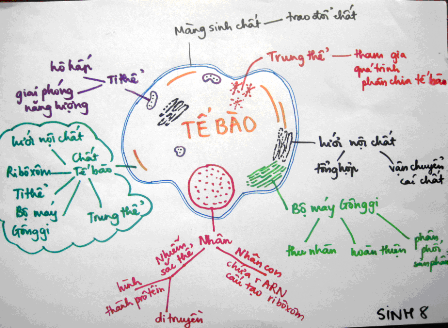 Màng sinh chất — trao đổi chất
hô hấp
giải phóng
năng lượng
Ti thể
Trung thể
tham gia
quá trình
phân chia tế bào
TẾ BÀO
lưới nội chất
Ribôxôm
Ti thể
Bộ máy
Gônggi
Chất
Tế bào
Trung thể
lưới nội chất
tổng hợp
vận chuyển
các chất
Bộ máy Gônggi
thu nhận
hoàn thiện
phân
phối
sản phẩm
Nhân
Nhiễm
sắc thể
hình
thành prôtêin
di truyền
Nhân con
chứa rARN
cấu tạo ribôxôm
SINH 8